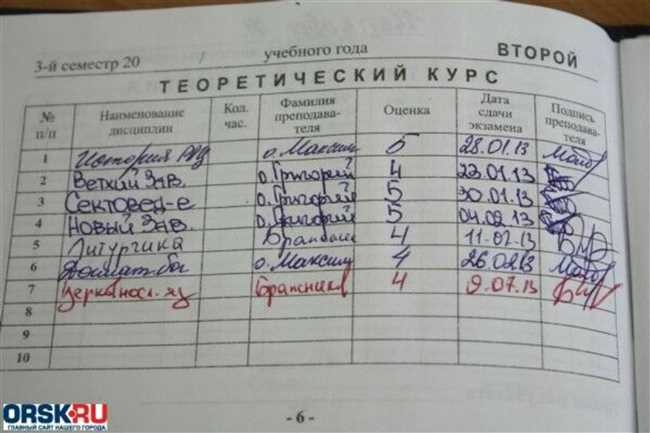 3-й семестр 20 / учебного года ВТОРОЙ
ТЕОРЕТИЧЕСКИЙ КУРС
№ п/п Наименование дисциплин Кол. час. Фамилия преподава- теля Оценка Дата сдачи экзамена Подпись преподава- теля
1 История РПЦ о.Максим 5 28.01.13
2 Ветхий Зав. о.Григорий 4 23.01.13
3 Сектовед-е о.Григорий 5 30.01.13
4 Новый Зав. о.Григорий 5 04.02.13
5 Литургика 4 11.02.13
6 о.Максим 4 26.02.13
7 Церковносл. яз Бражников 4 9.07.13
8
9
10
- 6 -
ORSK.RU
ГЛАВНЫЙ САЙТ НАШЕГО ГОРОДА